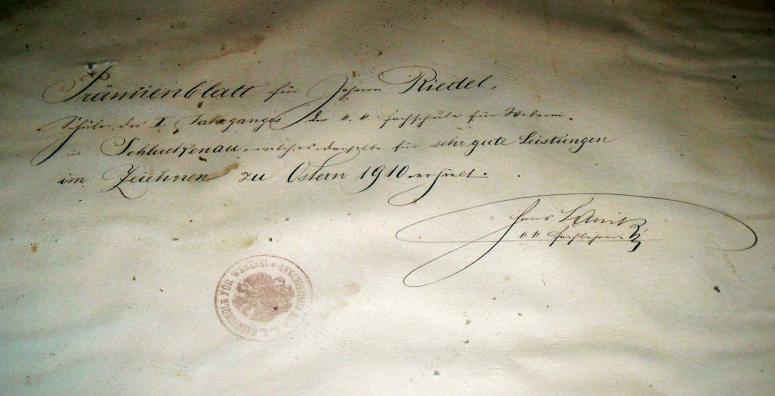 Prämienblatt für Johann Riedel,
Schüler des I. Jahrganges der k. k. Fachschule für Weberei
in Schluckenau, welches derselbe für sehr gute Leistungen
im Zeichnen zu Ostern 1910 erhielt.
Hans
k. k. Fachlehrer
K. K. FACHSCHULE FÜR WEBEREI